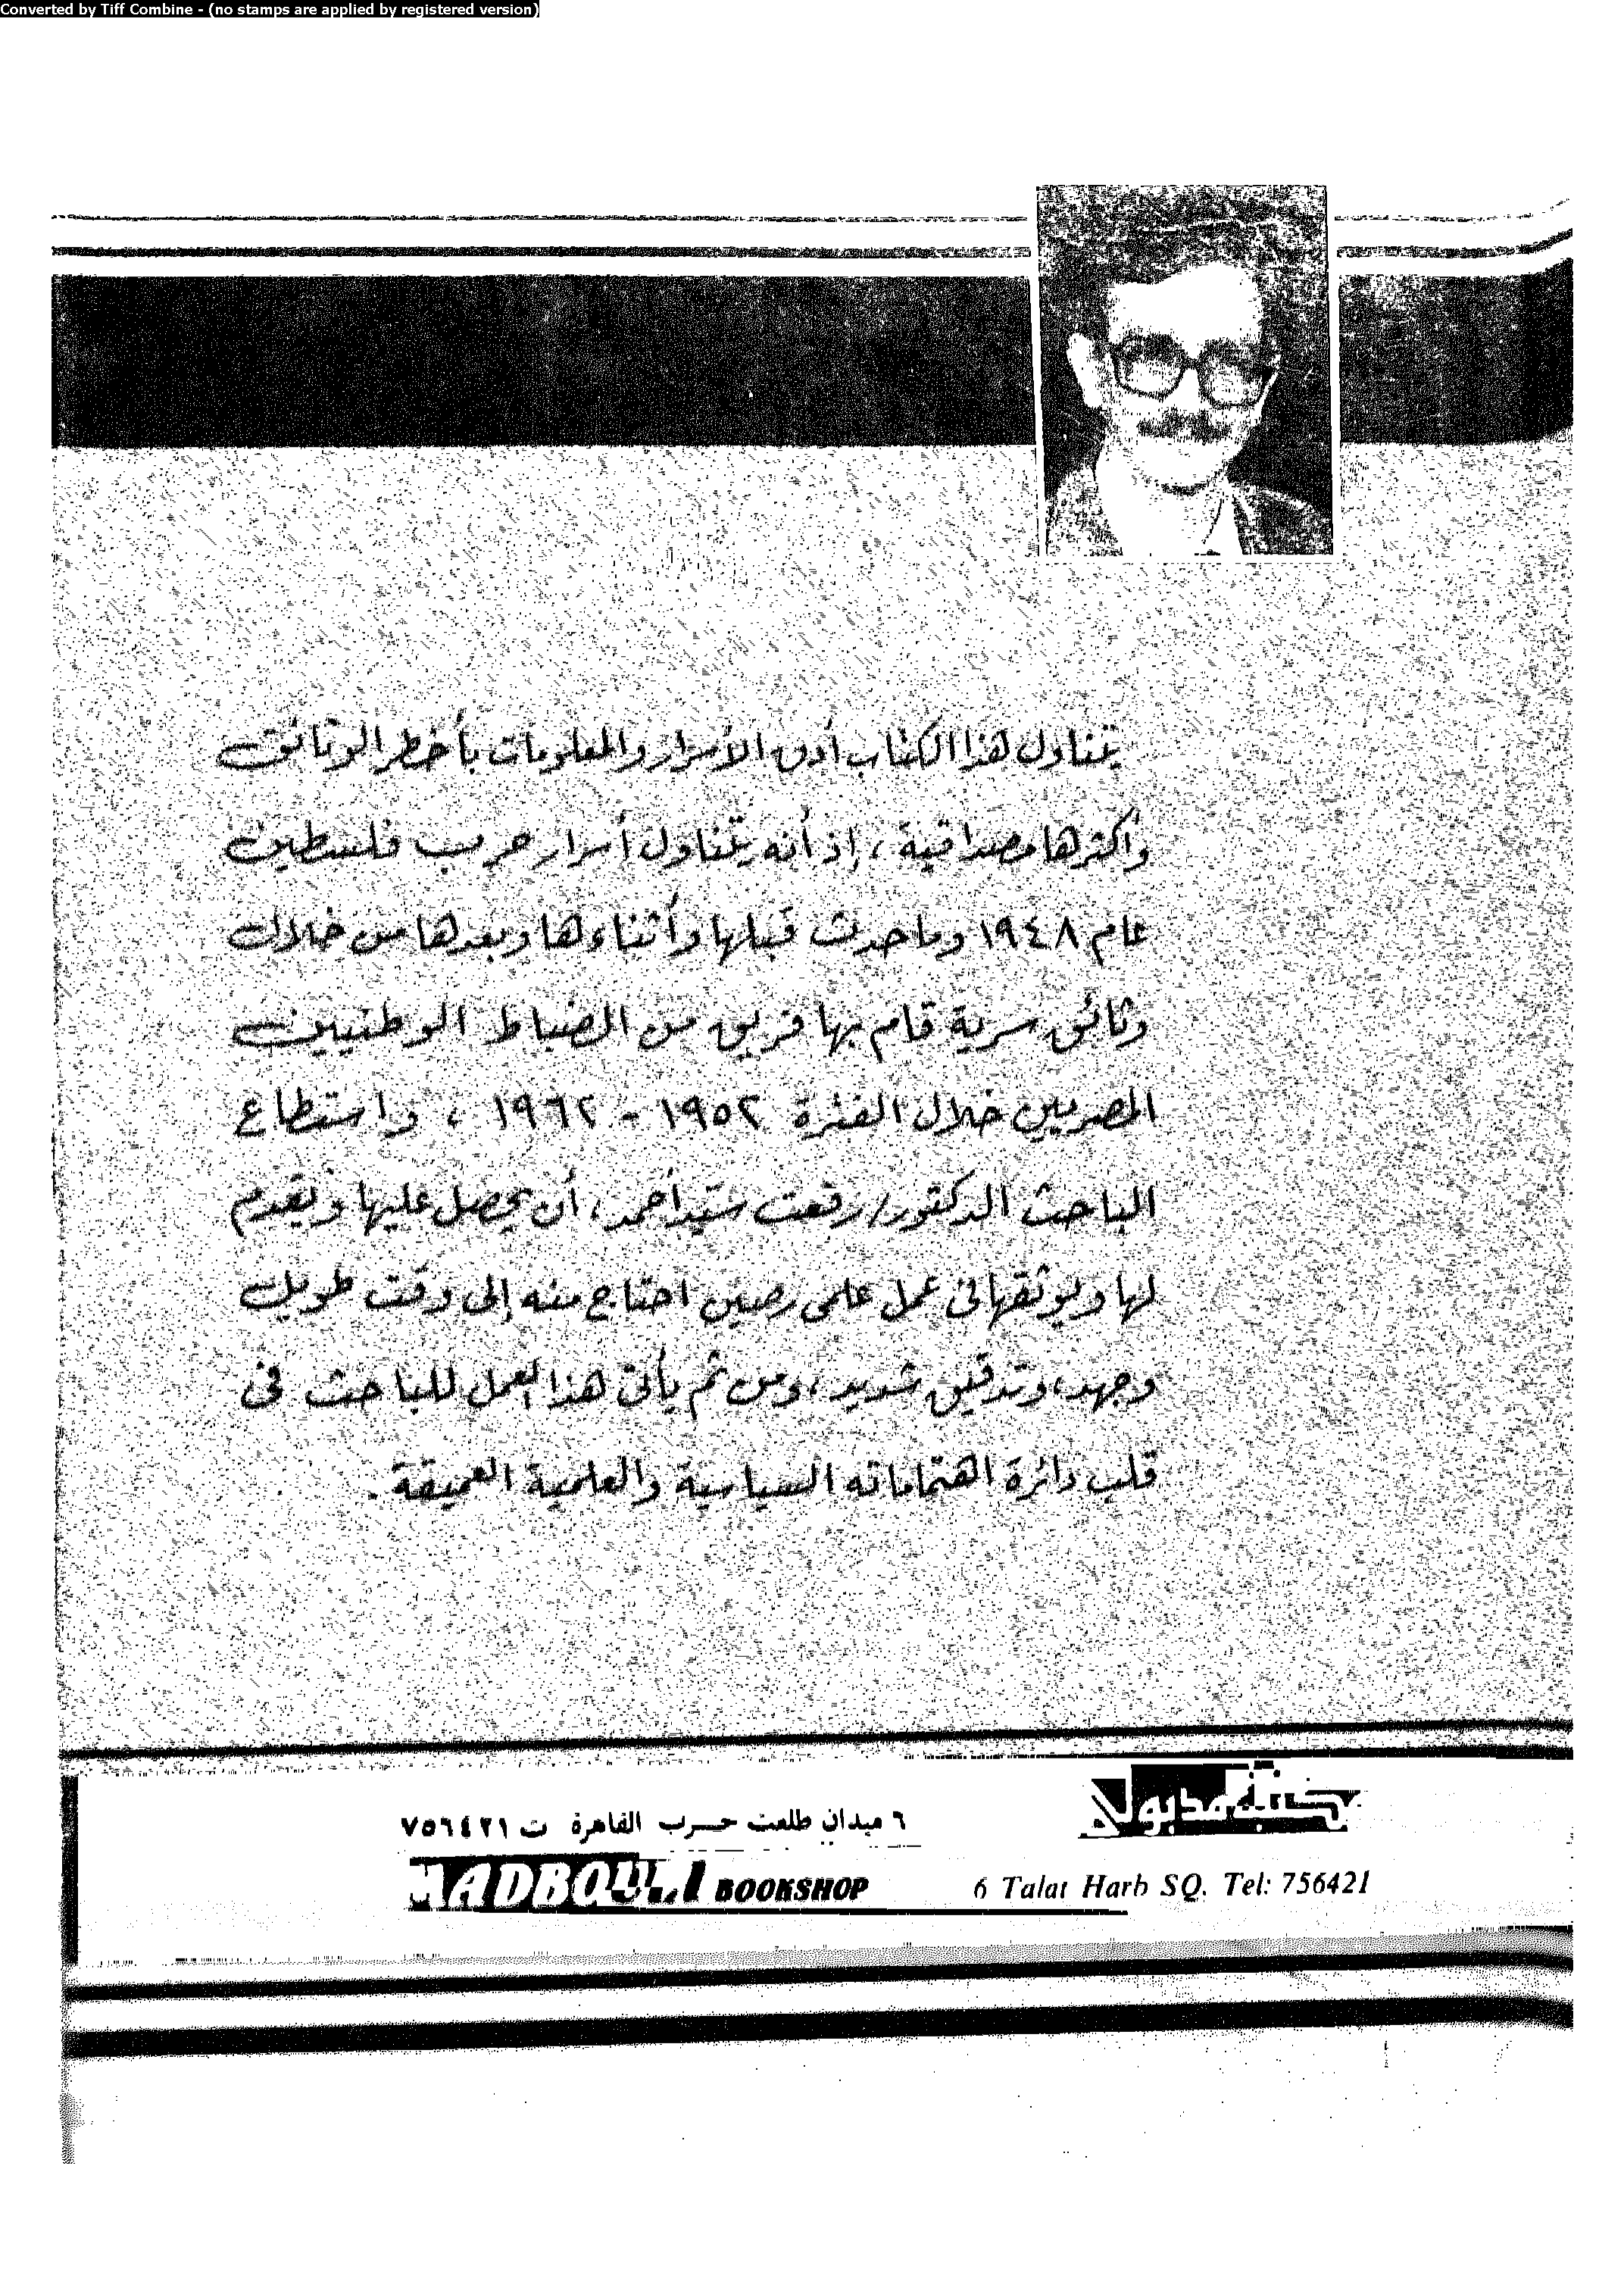 Converted by Tiff Combine - (no stamps are applied by registered version)
يتناول هذا الكتاب أدق الأسرار والمعلومات بأخطر الوثائق
وأكثرها مصداقية ، إذ أنه يتناول أسرار حرب فلسطين
عام ١٩٤٨ وما حدث قبلها وأثناءها وبعدها من خلال
وثائق سرية قام بها فريق من الضباط الوطنيين
المصريين خلال الفترة ١٩٥٢ - ١٩٦٢ ، واستطاع
الباحث الدكتور/ رفعت سيد أحمد ، أن يحصل عليها ويقدم
لها ويوثقها فى عمل علمى رصين احتاج منه إلى وقت طويل
وجهد ، وتدقيق شديد ، ومن ثم يأتى هذا العمل للباحث فى
قلب دائرة اهتماماته السياسية والعلمية العميقة .
مكتبة مدبولى
٦ ميدان طلعت حرب القاهرة ت ٧٥٦٤٢١
MADBOULI BOOKSHOP 6 Talat Harb SQ. Tel: 756421